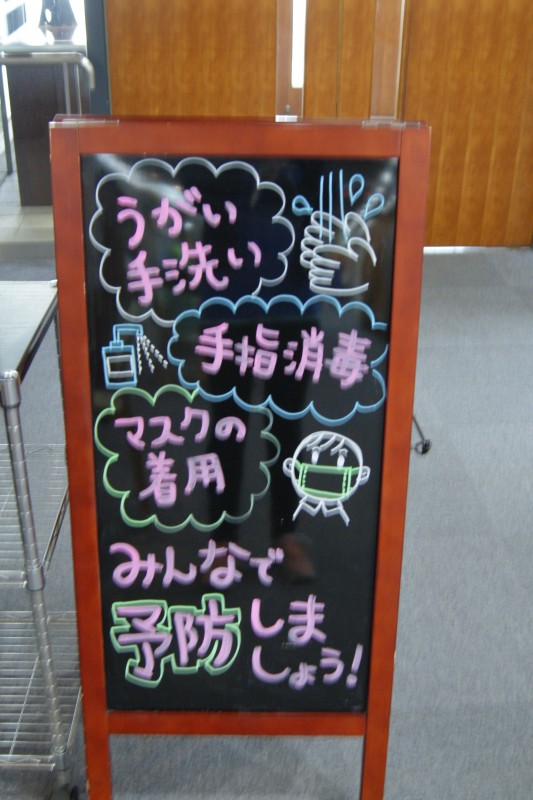 うがい
手洗い
手指消毒
マスクの
着用
みんなで
予防しま
しょう!